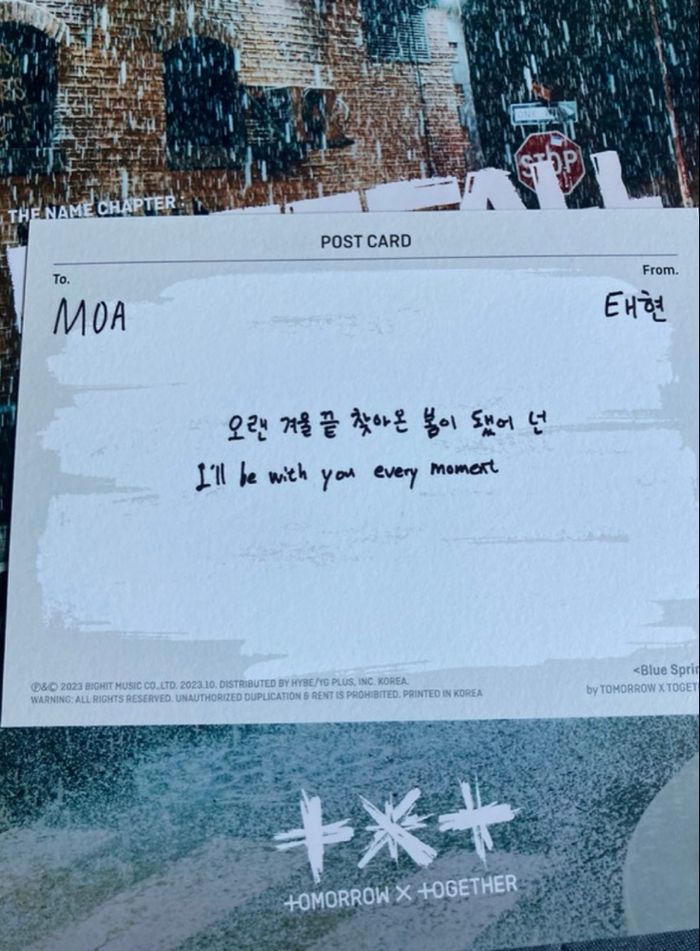 ONE
STOP
THE NAME CHAPTER :
FALL
POST CARD
To.
From.
MOA
태현
오랜 겨울 끝 찾아온 봄이 됐어 넌
I'll be with you every moment
<Blue Sprin
℗&© 2023 BIGHIT MUSIC CO.,LTD. 2023.10. DISTRIBUTED BY HYBE/YG PLUS, INC. KOREA.
by TOMORROW X TOGET
WARNING: ALL RIGHTS RESERVED. UNAUTHORIZED DUPLICATION & RENT IS PROHIBITED. PRINTED IN KOREA
TOMORROW X TOGETHER